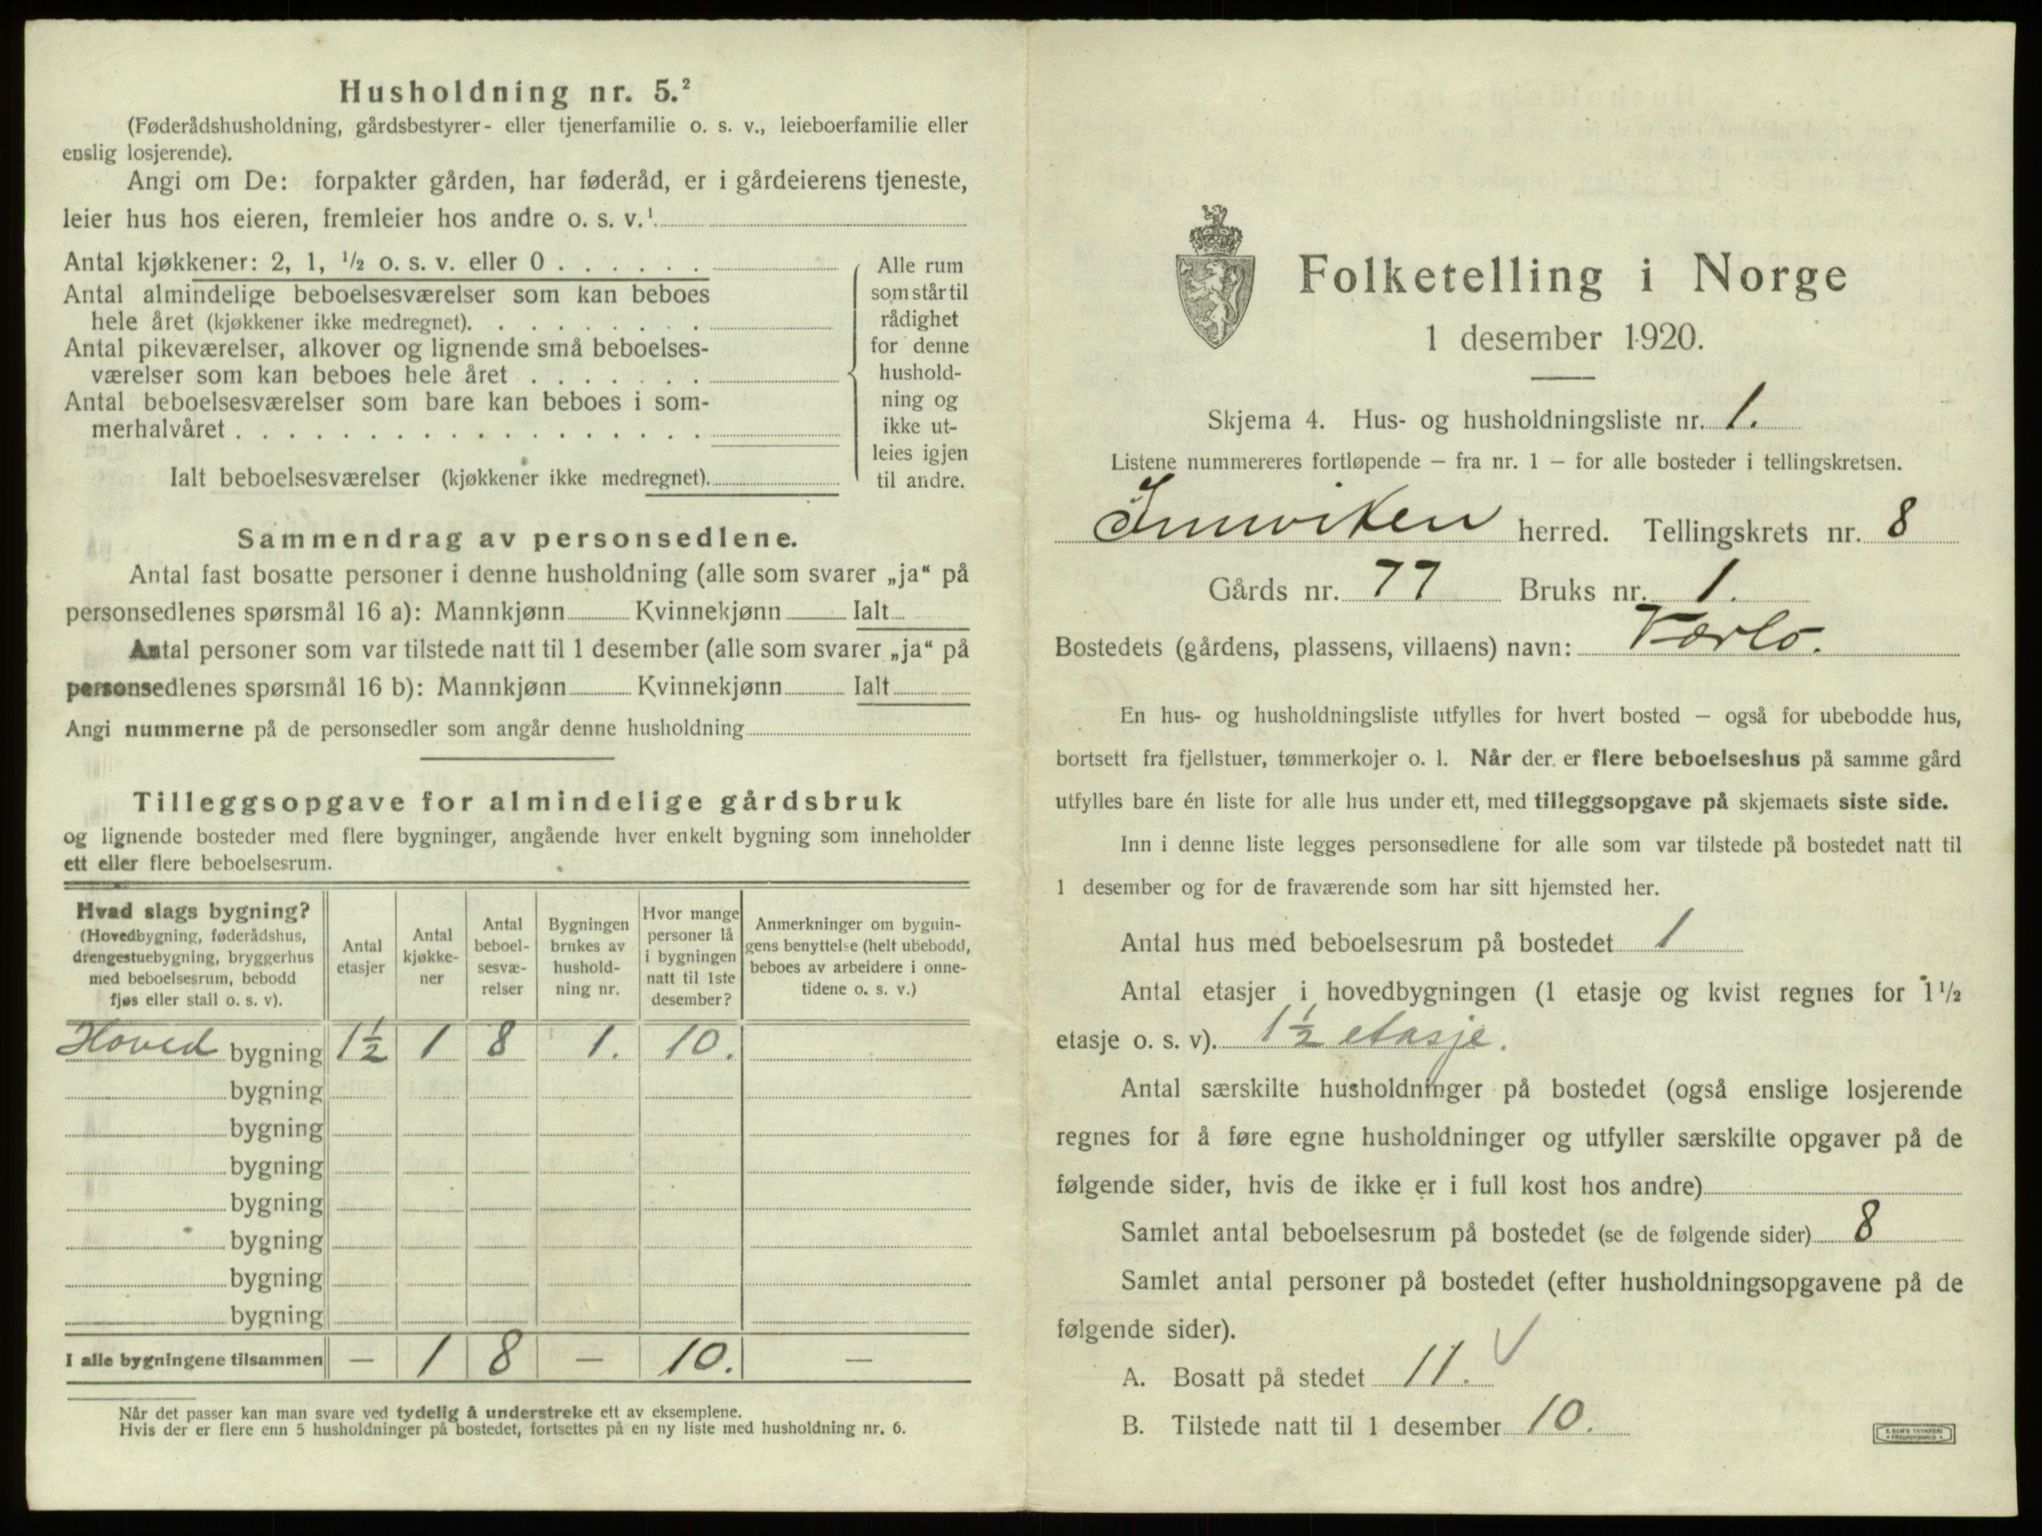 Husholdning nr. 5.²
(Føderådshusholdning, gårdsbestyrer- eller tjenerfamilie o. s. v., leieboerfamilie eller
enslig losjerende).
Angi om De: forpakter gården, har føderåd, er i gårdeierens tjeneste,
leier hus hos eieren, fremleier hos andre o. s. v.¹
Antal kjøkkener: 2, 1, ½ o. s. v. eller 0 . . . . . .
Antal almindelige beboelsesværelser som kan beboes
hele året (kjøkkener ikke medregnet). . . . . . . . .
Antal pikeværelser, alkover og lignende små beboelses-
værelser som kan beboes hele året . . . . . . .
Antal beboelsesværelser som bare kan beboes i som-
merhalvåret . . . . . . . . . . . . . . . . . .
Ialt beboelsesværelser (kjøkkener ikke medregnet).
Alle rum
som står til
rådighet
for denne
hushold-
ning og
ikke ut-
leies igjen
til andre.
Sammendrag av personsedlene.
Antal fast bosatte personer i denne husholdning (alle som svarer „ja“ på
personsedlenes spørsmål 16 a): Mannkjønn Kvinnekjønn Ialt
Antal personer som var tilstede natt til 1 desember (alle som svarer „ja“ på
personsedlenes spørsmål 16 b): Mannkjønn Kvinnekjønn Ialt
Angi nummerne på de personsedler som angår denne husholdning
Tilleggsopgave for almindelige gårdsbruk
og lignende bosteder med flere bygninger, angående hver enkelt bygning som inneholder
ett eller flere beboelsesrum.
Hvad slags bygning?
(Hovedbygning, føderådshus,
drengestuebygning, bryggerhus
med beboelsesrum, bebodd
fjøs eller stall o. s. v).
Antal
etasjer
Antal
kjøkke-
ner
Antal
beboel-
sesvæ-
relser
Bygningen
brukes av
hushold-
ning nr.
Hvor mange
personer lå
i bygningen
natt til 1ste
desember?
Anmerkninger om bygnin-
gens benyttelse (helt ubebodd,
beboes av arbeidere i onne-
tidene o. s. v.)
Hoved bygning 1½ 1 8 1. 10.
bygning
bygning
bygning
bygning
bygning
bygning
bygning
I alle bygningene tilsammen — 1 8 — 10. —
Når det passer kan man svare ved tydelig å understreke ett av eksemplene.
Hvis der er flere enn 5 husholdninger på bostedet, fortsettes på en ny liste med husholdning nr. 6.
Folketelling i Norge
1 desember 1920.
Skjema 4. Hus- og husholdningsliste nr. 1.
Listene nummereres fortløpende — fra nr. 1 — for alle bosteder i tellingskretsen.
Innviken herred. Tellingskrets nr. 8
Gårds nr. 77 Bruks nr. 1.
Bostedets (gårdens, plassens, villaens) navn: Værlo.
En hus- og husholdningsliste utfylles for hvert bosted — også for ubebodde hus,
bortsett fra fjellstuer, tømmerkojer o. l. Når der er flere beboelseshus på samme gård
utfylles bare én liste for alle hus under ett, med tilleggsopgave på skjemaets siste side.
Inn i denne liste legges personsedlene for alle som var tilstede på bostedet natt til
1 desember og for de fraværende som har sitt hjemsted her.
Antal hus med beboelsesrum på bostedet 1
Antal etasjer i hovedbygningen (1 etasje og kvist regnes for 1½
etasje o. s. v). 1½ etasje.
Antal særskilte husholdninger på bostedet (også enslige losjerende
regnes for å føre egne husholdninger og utfyller særskilte opgaver på de
følgende sider, hvis de ikke er i full kost hos andre)
Samlet antal beboelsesrum på bostedet (se de følgende sider) 8
Samlet antal personer på bostedet (efter husholdningsopgavene på de
følgende sider).
A. Bosatt på stedet 11. ✓
B. Tilstede natt til 1 desember 10.